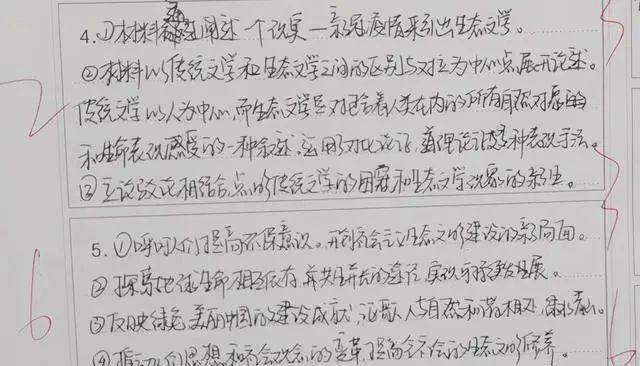 4.①材料通过阐述一个现实—新冠疫情来引出生态文学。
②材料以传统文学和生态文学之间的区别与对立为中心点展开论述。
传统文学以人为中心,而生态文学是对包含着人类在内的所有自然对象的
和生命表现感受的一种叙述。运用了对比论证,道理论证等多种表现手法。
③立论驳论相结合点的传统文学的困窘和生态文学现象的新生。
5.①呼吁人们提高环保意识。开创社会主义生态文明建设的新局面。
②探索地球生命相互依存,并共同前去的途径,实现可持续发展。
③反映绿色美丽中国的建设成就,讴歌人与自然和谐相处,
④推动人们思想和社会观念的变革,提高全社会的生态文明修养。
2
6